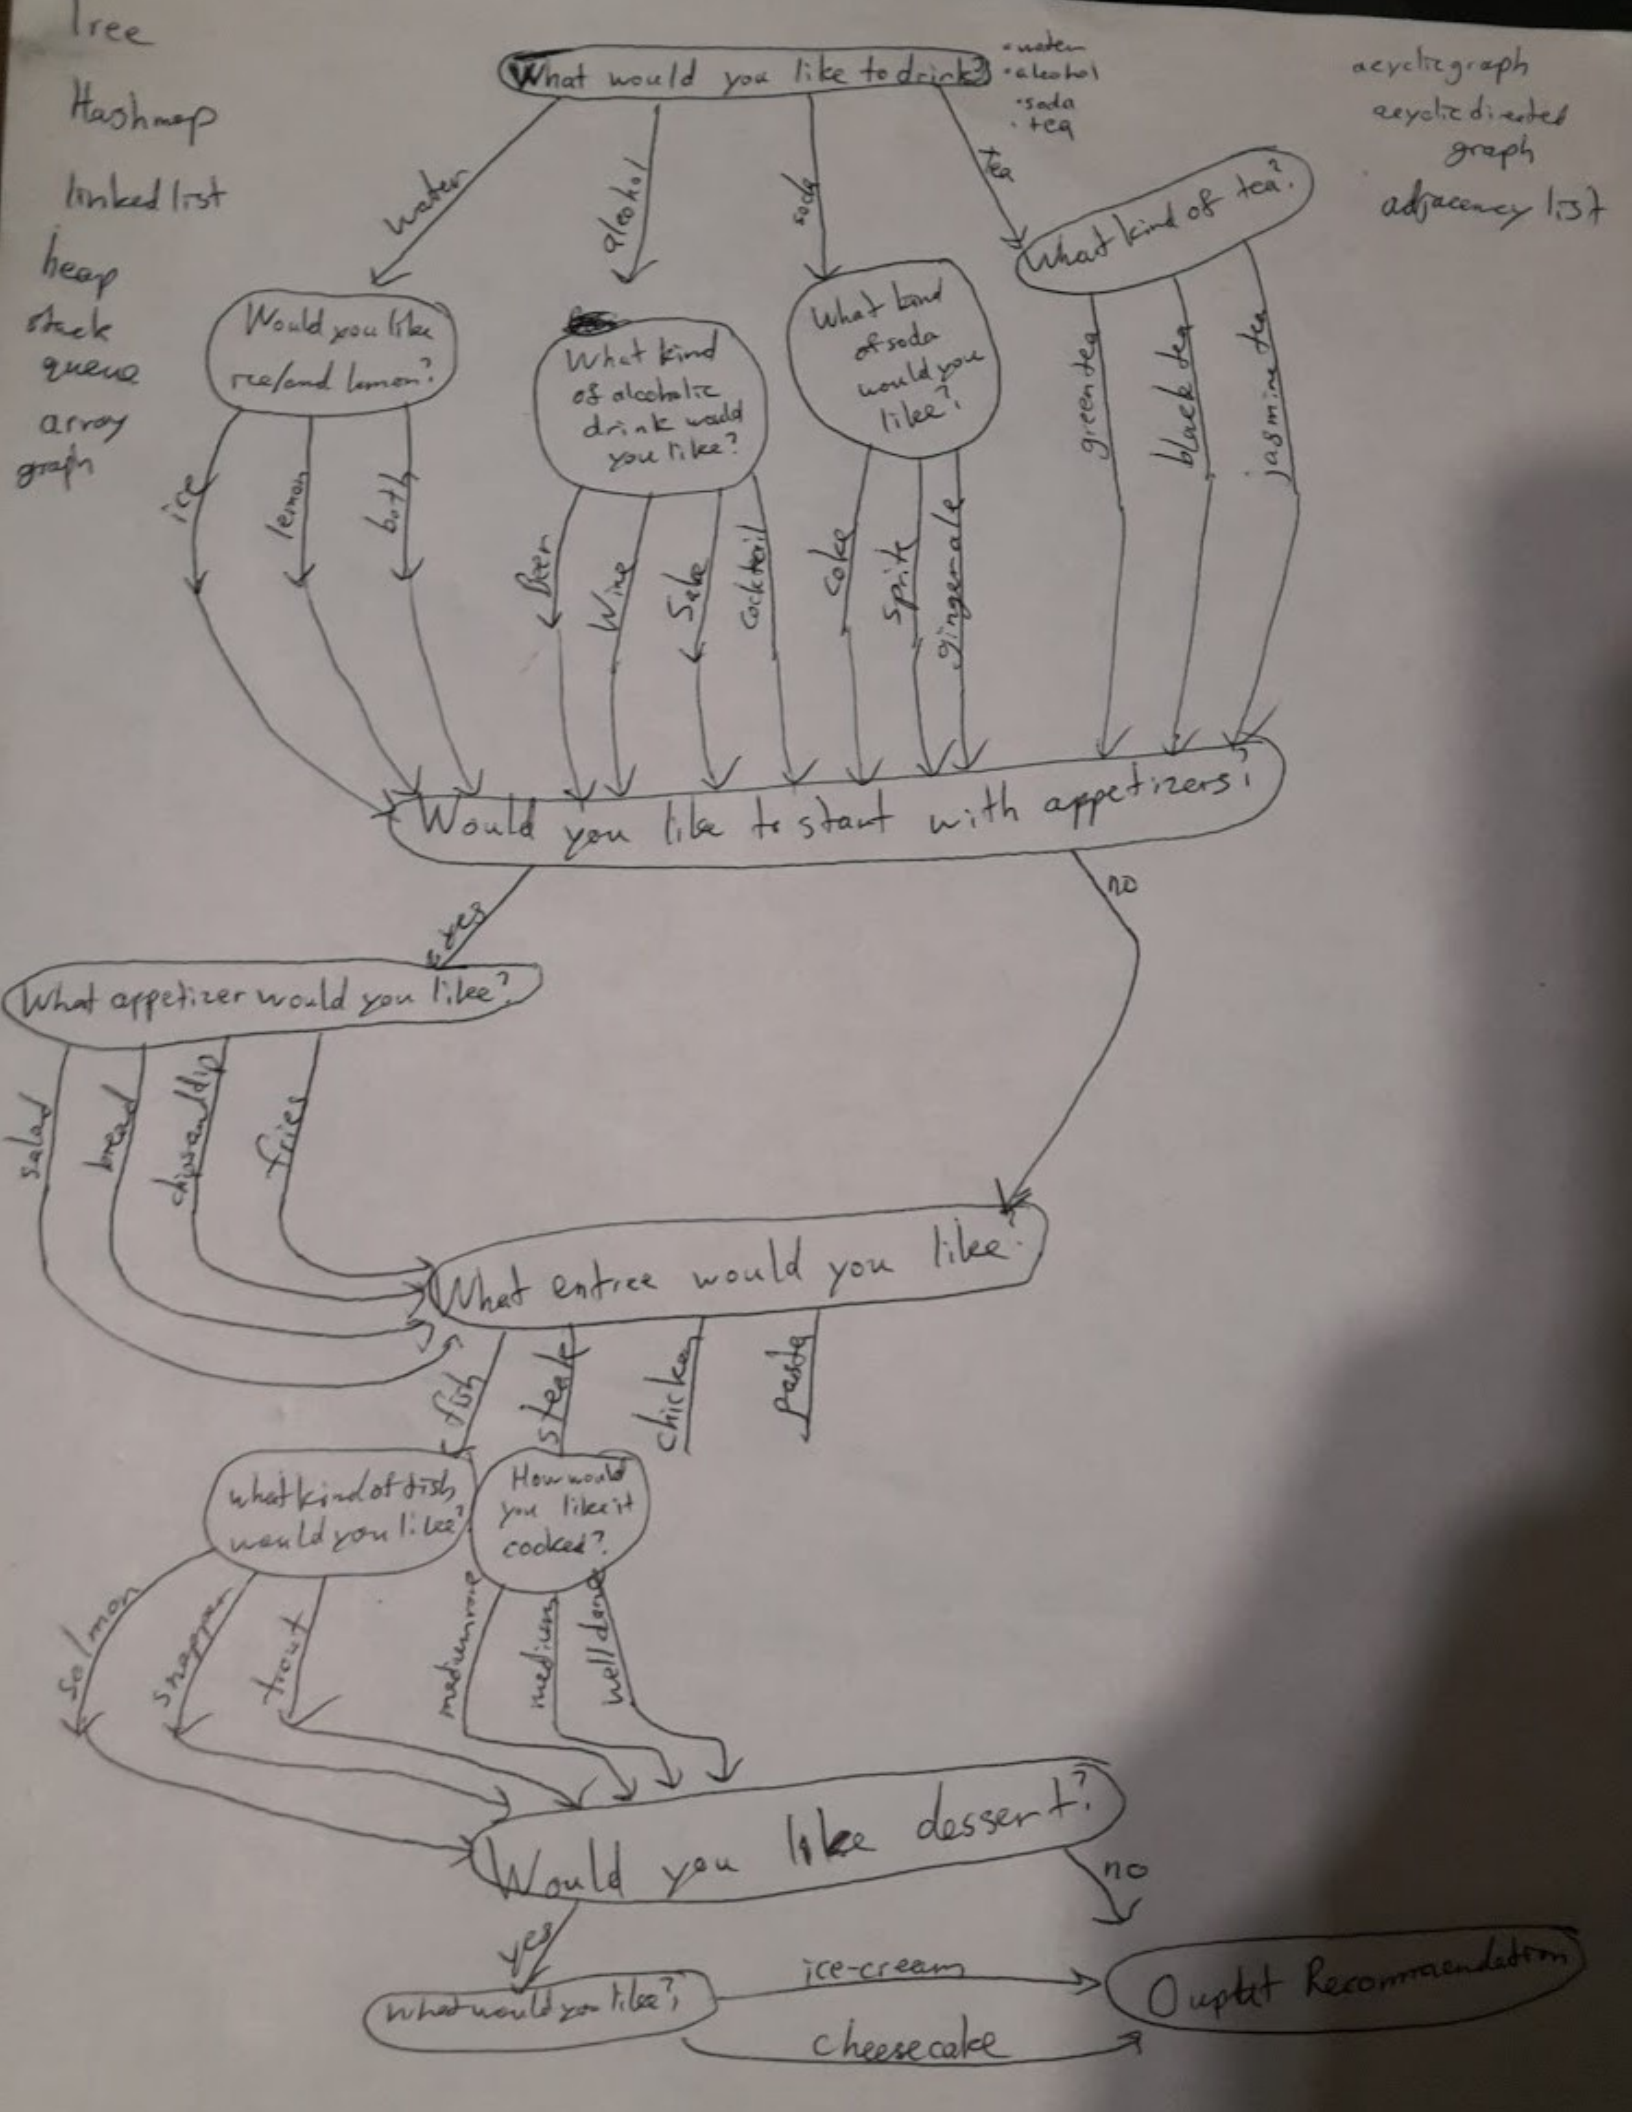 Tree
Hashmap
linked list
heap
stack
queue
array
graph
What would you like to drink?
• water
• alcohol
• soda
• tea
acyclic graph
acyclic directed
graph
adjacency list
water
alcohol
soda
tea
Would you like
ice/and lemon?
What kind
of alcoholic
drink would
you like?
What kind
of soda
would you
like?
What kind of tea?
ice
lemon
both
Beer
Wine
Sake
Cocktail
coke
sprite
gingerale
green tea
black tea
jasmine tea
Would you like to start with appetizers?
yes
no
What appetizer would you like?
salad
bread
chips and dip
fries
What entree would you like?
fish
steak
chicken
pasta
what kind of fish
would you like?
How would
you like it
cooked?
salmon
snapper
trout
medium rare
medium
well done
Would you like dessert?
yes
no
What would you like?
ice-cream
cheesecake
Ouptut Recommendation